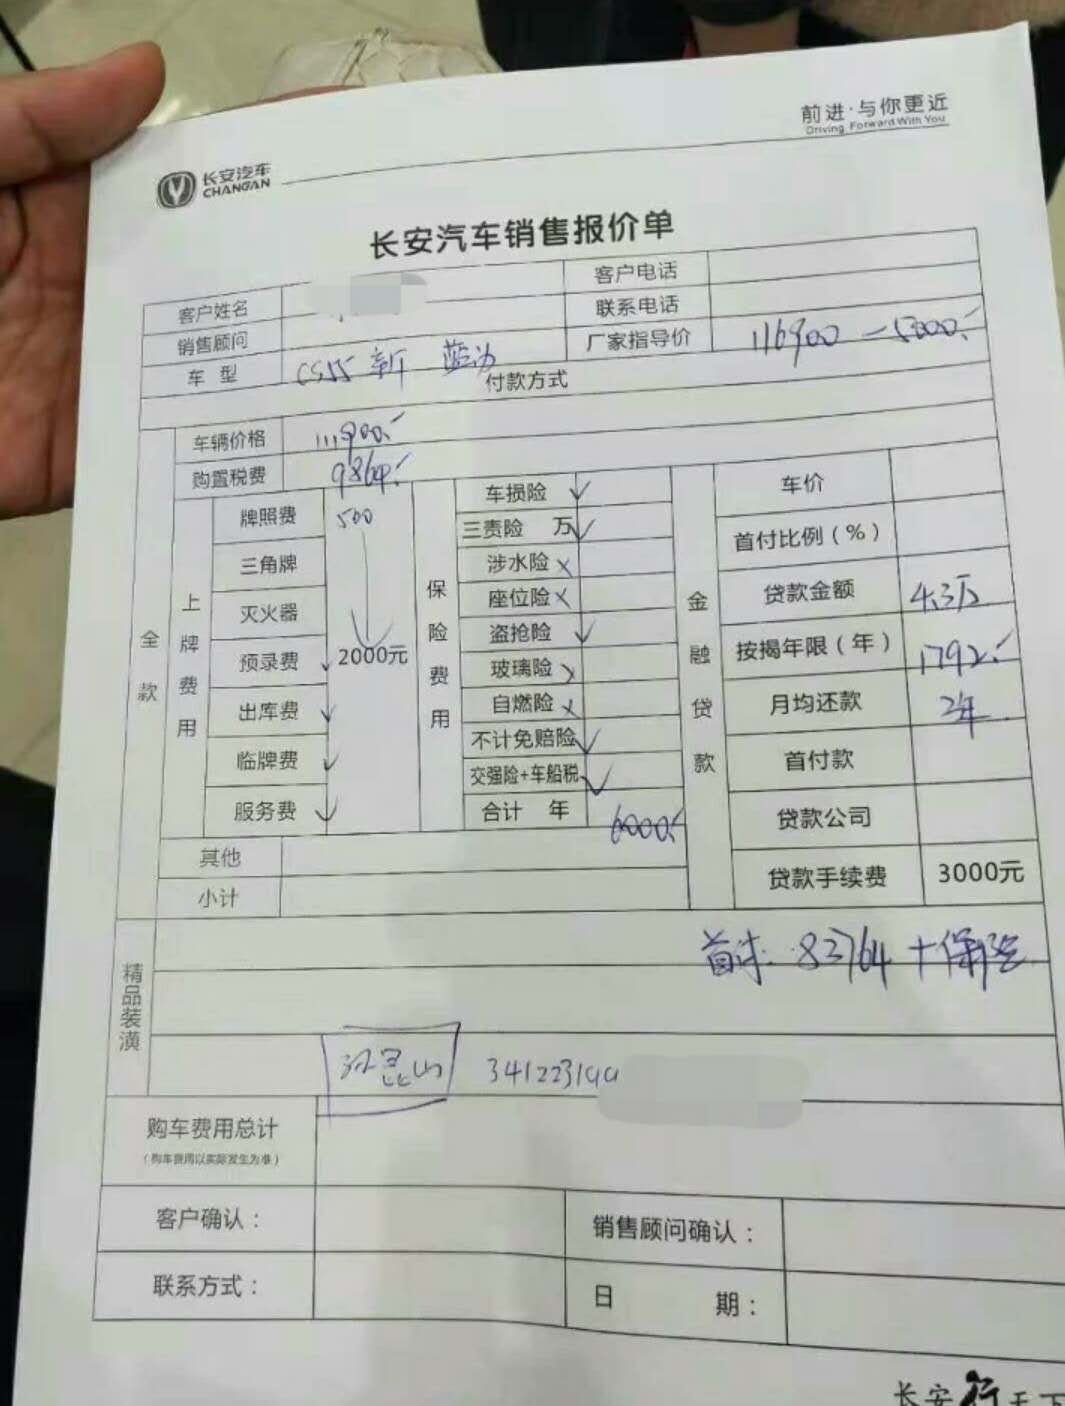 前进·与你更近
Driving Forward With You
长安汽车
CHANGAN
长安汽车销售报价单
客户姓名
客户电话
销售顾问
联系电话
车 型 CS55 新 蓝动
厂家指导价 116900 — 5000.
付款方式
全款
车辆价格 111900.
购置税费 9864.
上牌费用
牌照费 500
三角牌
灭火器
预录费 ✓ 2000元
出库费 ✓
临牌费 ✓
服务费 ✓
保险费用
车损险 ✓
三责险 万 ✓
涉水险 ×
座位险 ×
盗抢险 ✓
玻璃险 ×
自燃险 ×
不计免赔险 ✓
交强险+车船税 ✓
合计 年 6000.
金融贷款
车价
首付比例（%）
贷款金额 4.3万
按揭年限（年） 1792.
月均还款 2年
首付款
贷款公司
贷款手续费 3000元
其他
小计
精品装潢
83764 + 保险
昆山 341223199
购车费用总计
（购车费用以实际发生为准）
客户确认：
销售顾问确认：
联系方式：
日 期：
长安行天下